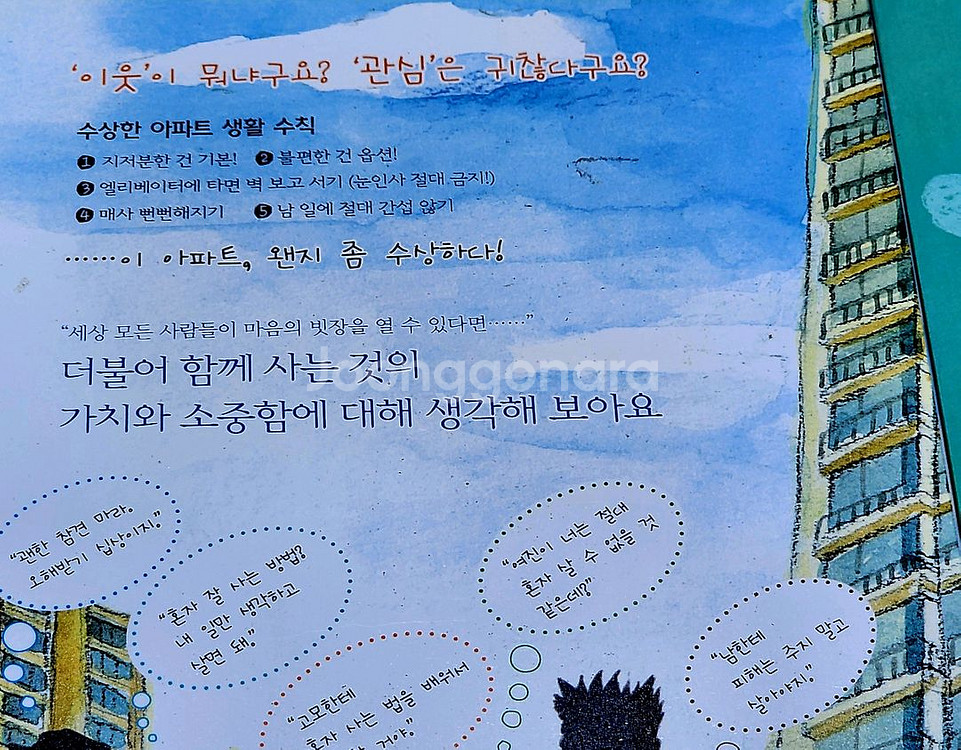 ‘이웃’이 뭐냐구요? ‘관심’은 귀찮다구요?
수상한 아파트 생활 수칙
❶ 지저분한 건 기본! ❷ 불편한 건 옵션!
❸ 엘리베이터에 타면 벽 보고 서기 (눈인사 절대 금지!)
❹ 매사 뻔뻔해지기 ❺ 남 일에 절대 간섭 않기
……이 아파트, 왠지 좀 수상하다!
“세상 모든 사람들이 마음의 빗장을 열 수 있다면……”
더불어 함께 사는 것의
joonggonara
가치와 소중함에 대해 생각해 보아요
“괜한 참견 마라.
오해받기 십상이지.”
“혼자 잘 사는 방법?
내 일만 생각하고
살면 돼.”
“여진이 너는 절대
혼자 살 수 없을 것
같은데?”
“남한테
피해는 주지 말고
살아야지.”
“고모한테
혼자 사는 법을 배워서
거야.”